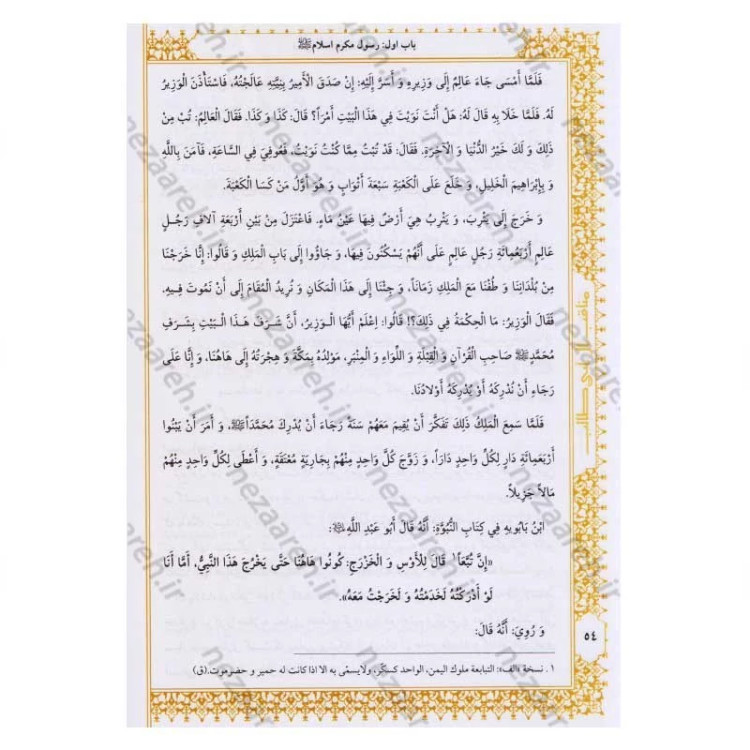 باب اول: رسول مکرم اسلام ﷺ
فَلَمَّا أَمْسَى جَاءَ عَالِمٌ إِلَى وَزِيرِهِ وَ أَسَرَّ إِلَيْهِ: إِنْ صَدَقَ الْأَمِيرُ بِنِيَّتِهِ عَالَجْتُهُ، فَاسْتَأْذَنَ الْوَزِيرُ
لَهُ. فَلَمَّا خَلَا بِهِ قَالَ لَهُ: هَلْ أَنْتَ نَوَيْتَ فِي هَذَا الْبَيْتِ أَمْراً؟ قَالَ: كَذَا وَ كَذَا. فَقَالَ الْعَالِمُ: تُبْ مِنْ
ذَلِكَ وَ لَكَ خَيْرُ الدُّنْيَا وَ الْآخِرَةِ. فَقَالَ: قَدْ تُبْتُ مِمَّا كُنْتُ نَوَيْتُ، فَعُوفِيَ فِي السَّاعَةِ، فَآمَنَ بِاللَّهِ
وَ بِإِبْرَاهِيمَ الْخَلِيلِ، وَ خَلَعَ عَلَى الْكَعْبَةِ سَبْعَةَ أَثْوَابٍ وَ هُوَ أَوَّلُ مَنْ كَسَا الْكَعْبَةَ.
وَ خَرَجَ إِلَى يَثْرِبَ، وَ يَثْرِبُ هِيَ أَرْضٌ فِيهَا عَيْنُ مَاءٍ. فَاعْتَزَلَ مِنْ بَيْنِ أَرْبَعَةِ آلَافِ رَجُلٍ
عَالِمٍ أَرْبَعُمِائَةِ رَجُلٍ عَالِمٍ عَلَى أَنَّهُمْ يَسْكُنُونَ فِيهَا، وَ جَاؤُوا إِلَى بَابِ الْمَلِكِ وَ قَالُوا: إِنَّا خَرَجْنَا
مِنْ بُلْدَانِنَا وَ طُفْنَا مَعَ الْمَلِكِ زَمَاناً، وَ جِئْنَا إِلَى هَذَا الْمَكَانِ وَ نُرِيدُ الْمُقَامَ إِلَى أَنْ نَمُوتَ فِيهِ.
فَقَالَ الْوَزِيرُ: مَا الْحِكْمَةُ فِي ذَلِكَ؟! قَالُوا: اِعْلَمْ أَيُّهَا الْوَزِيرُ، أَنَّ شَرَفَ هَذَا الْبَيْتِ بِشَرَفِ
مُحَمَّدٍ ﷺ صَاحِبِ الْقُرْآنِ وَ الْقِبْلَةِ وَ اللِّوَاءِ وَ الْمِنْبَرِ، مَوْلِدُهُ بِمَكَّةَ وَ هِجْرَتُهُ إِلَى هَاهُنَا، وَ إِنَّا عَلَى
رَجَاءِ أَنْ نُدْرِكَهُ أَوْ يُدْرِكَهُ أَوْلَادُنَا.
فَلَمَّا سَمِعَ الْمَلِكُ ذَلِكَ تَفَكَّرَ أَنْ يُقِيمَ مَعَهُمْ سَنَةً رَجَاءَ أَنْ يُدْرِكَ مُحَمَّداً ﷺ، وَ أَمَرَ أَنْ يَبْنُوا
أَرْبَعَمِائَةِ دَارٍ لِكُلِّ وَاحِدٍ دَاراً، وَ زَوَّجَ كُلَّ وَاحِدٍ مِنْهُمْ بِجَارِيَةٍ مُعْتَقَةٍ، وَ أَعْطَى لِكُلِّ وَاحِدٍ مِنْهُمْ
مَالاً جَزِيلاً.
ابْنُ بَابَوَيْهِ فِي كِتَابِ النُّبُوَّةِ: أَنَّهُ قَالَ أَبُو عَبْدِ اللَّهِ:
«إِنَّ تُبَّعاً١ قَالَ لِلْأَوْسِ وَ الْخَزْرَجِ: كُونُوا هَاهُنَا حَتَّى يَخْرُجَ هَذَا النَّبِيُّ، أَمَّا أَنَا
لَوْ أَدْرَكْتُهُ لَخَدَمْتُهُ وَ لَخَرَجْتُ مَعَهُ».
وَ رُوِيَ: أَنَّهُ قَالَ:
١ . نسخة «الف»: التبابعة ملوك اليمن، الواحد كسكّر، ولايسمّى به الا اذا كانت له حمير و حضرموت.(ق)
٥٤
nezaareh.ir